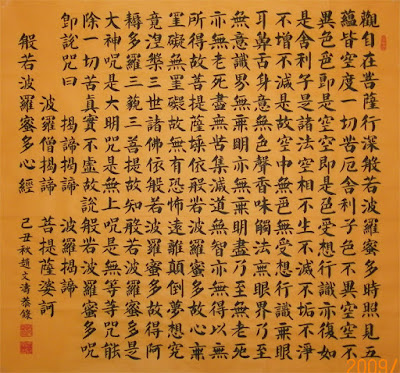 觀自在菩薩行深般若波羅蜜多時照見五
蘊皆空度一切苦厄舍利子色不異空空不
異色色即是空空即是色受想行識亦復如
是舍利子是諸法空相不生不滅不垢不淨
不增不減是故空中無色無受想行識無眼
耳鼻舌身意無色聲香味觸法無眼界乃至
無意識界無無明亦無無明盡乃至無老死
亦無老死盡無苦集滅道無智亦無得以無
所得故菩提薩埵依般若波羅蜜多故心無
罣礙無罣礙故無有恐怖遠離顛倒夢想究
竟涅槃三世諸佛依般若波羅蜜多故得阿
耨多羅三藐三菩提故知般若波羅蜜多是
大神咒是大明咒是無上咒是無等等咒能
除一切苦真實不虛故說般若波羅蜜多咒
即說咒曰 揭諦揭諦 波羅揭諦
波羅僧揭諦 菩提薩婆訶
般若波羅蜜多心經 己丑秋趙文濤恭錄
2009/